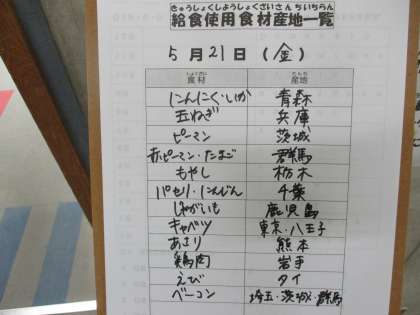 きゅうしょくしようしょくざいさんちいちらん
給食使用食材産地一覧
5月21日(金)
しょくざい さんち
食材 産地
にんにく・いか 青森
玉ねぎ 兵庫
ピーマン 茨城
赤ピーマン・たまご 群馬
もやし 栃木
パセリ・にんじん 千葉
じゃがいも 鹿児島
キャベツ 東京・八王子
あさり 熊本
鶏肉 岩手
えび タイ
ベーコン 埼玉・茨城・群馬